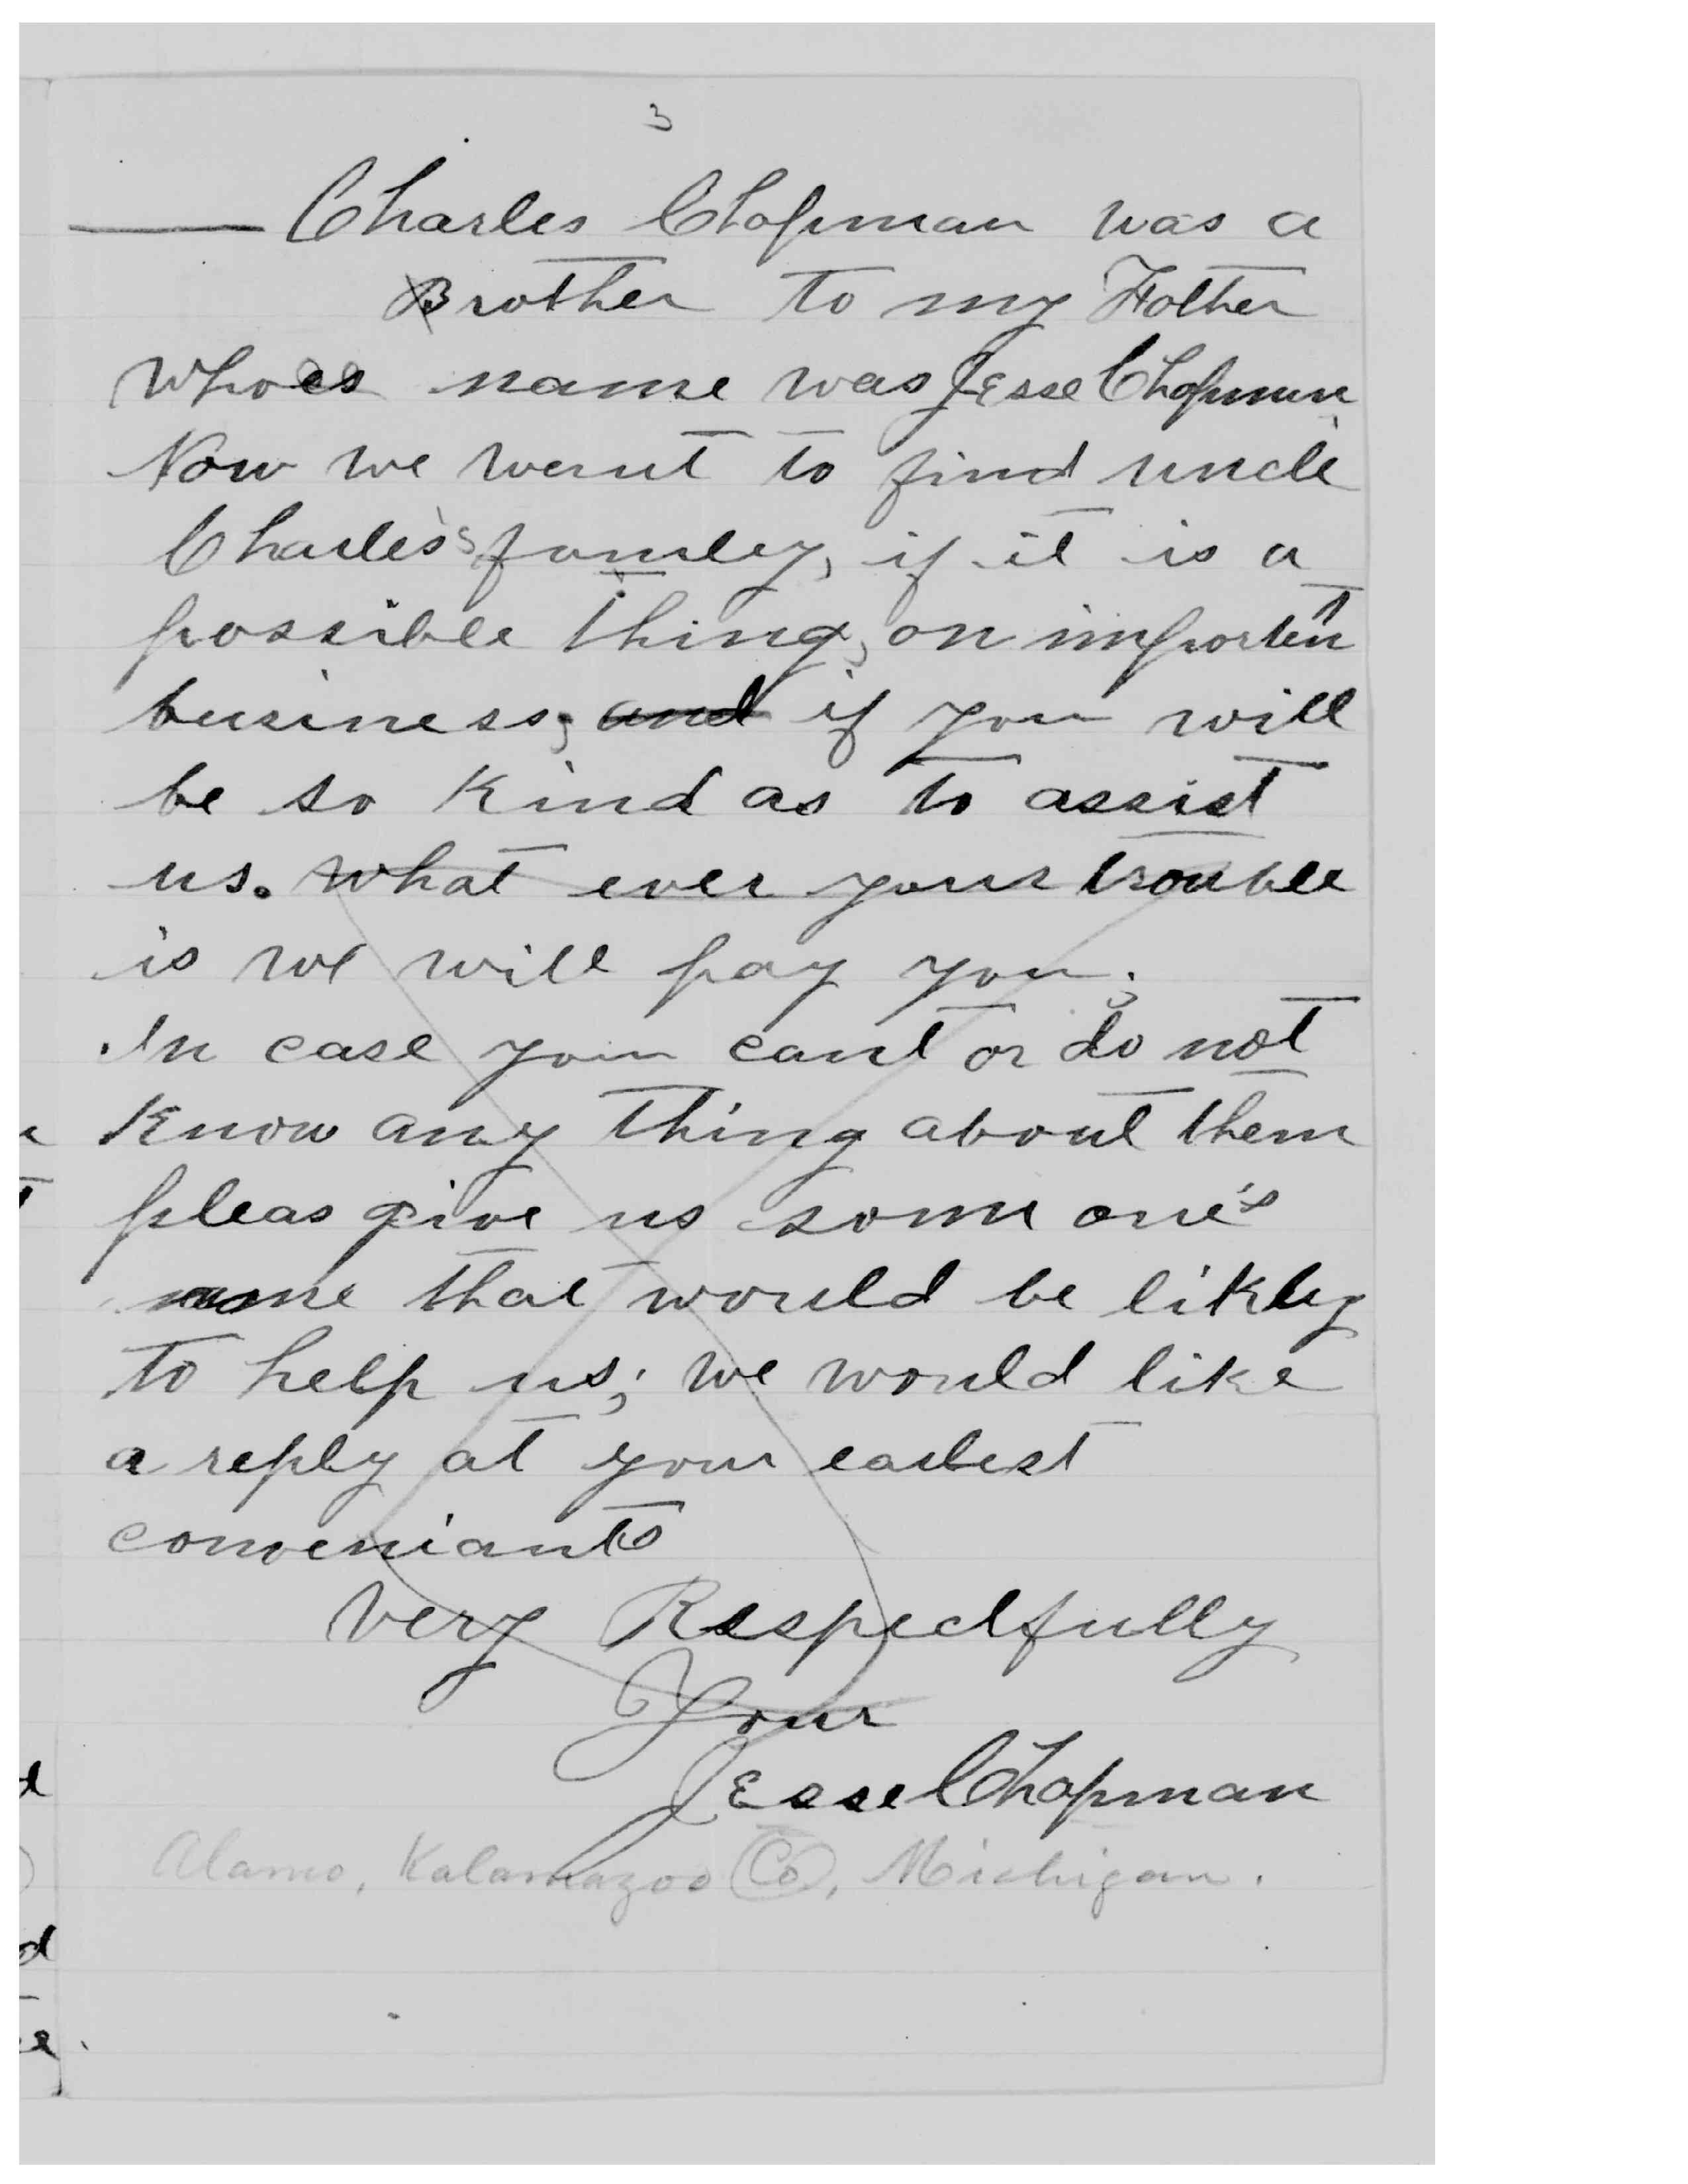 3
Charles Chapman was a
Brother to my Father
whoes name was Jesse Chapman
Now we want to find uncle
Charles's famley, if it is a
possible thing, on importent
business; and if you will
be so kind as to assist
us. what ever your trouble
is we will pay you;
In case you cant or do not
Know any thing about them
pleas give us some one's
name that would be likley
to help us; we would like
a reply at your earlest
conveniants
Very Respectfully
Your
Jesse Chapman
Alamo, Kalamazoo Co, Michigan.